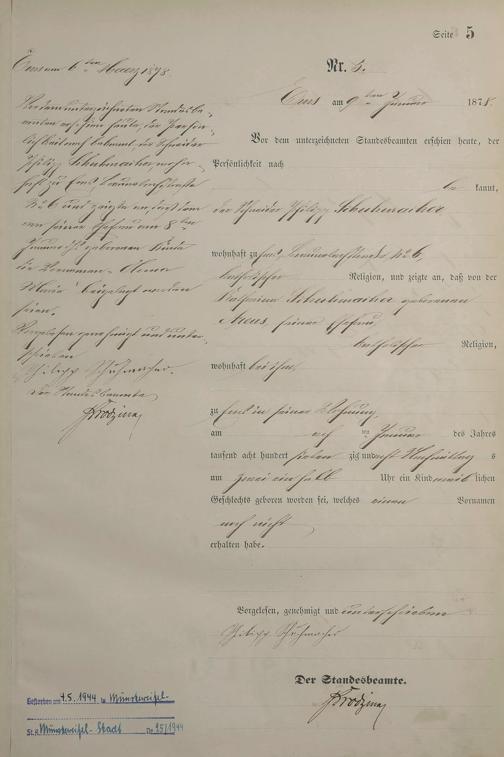 Seite 5
Nr. 5.
Ems am 9ten Januar 1878.
Vor dem unterzeichneten Standesbeamten erschien heute, der
Persönlichkeit nach
be kannt,
der Schneider Philipp Schuhmacher
wohnhaft zu Ems, No 6,
katholischer Religion, und zeigte an, daß von der
Schuhmacher geborenen
seiner Ehefrau
katholischer Religion,
wohnhaft bei ihm
zu Ems in seiner Wohnung
am acht ten Januar des Jahres
tausend acht hundert sieben zig und acht Nachmittag s
um zwei ein halb Uhr ein Kind weib lichen
Geschlechts geboren worden sei, welches einen Vornamen
noch nicht
erhalten habe.
Vorgelesen, genehmigt und unterschrieben
Philipp Schuhmacher
Der Standesbeamte.
Ems am 6ten März 1878.
Vor dem unterzeichneten Standesbe-
amten erschien heute, der Persön-
lichkeit nach bekannt, der Schneider
Philipp Schuhmacher, wohn-
haft zu Ems,
No 6 und zeigte an, daß dem
von seiner Ehefrau am 8ten
Januar geborenen Kinde
die Vornamen
Maria beigelegt worden
seien.
Vorgelesen genehmigt und unter-
schrieben
Philipp Schuhmacher.
Der Standesbeamte
Gestorben am 4.5.1944 in Münstereifel
St.A. Münstereifel-Stadt Nr. 25/1944